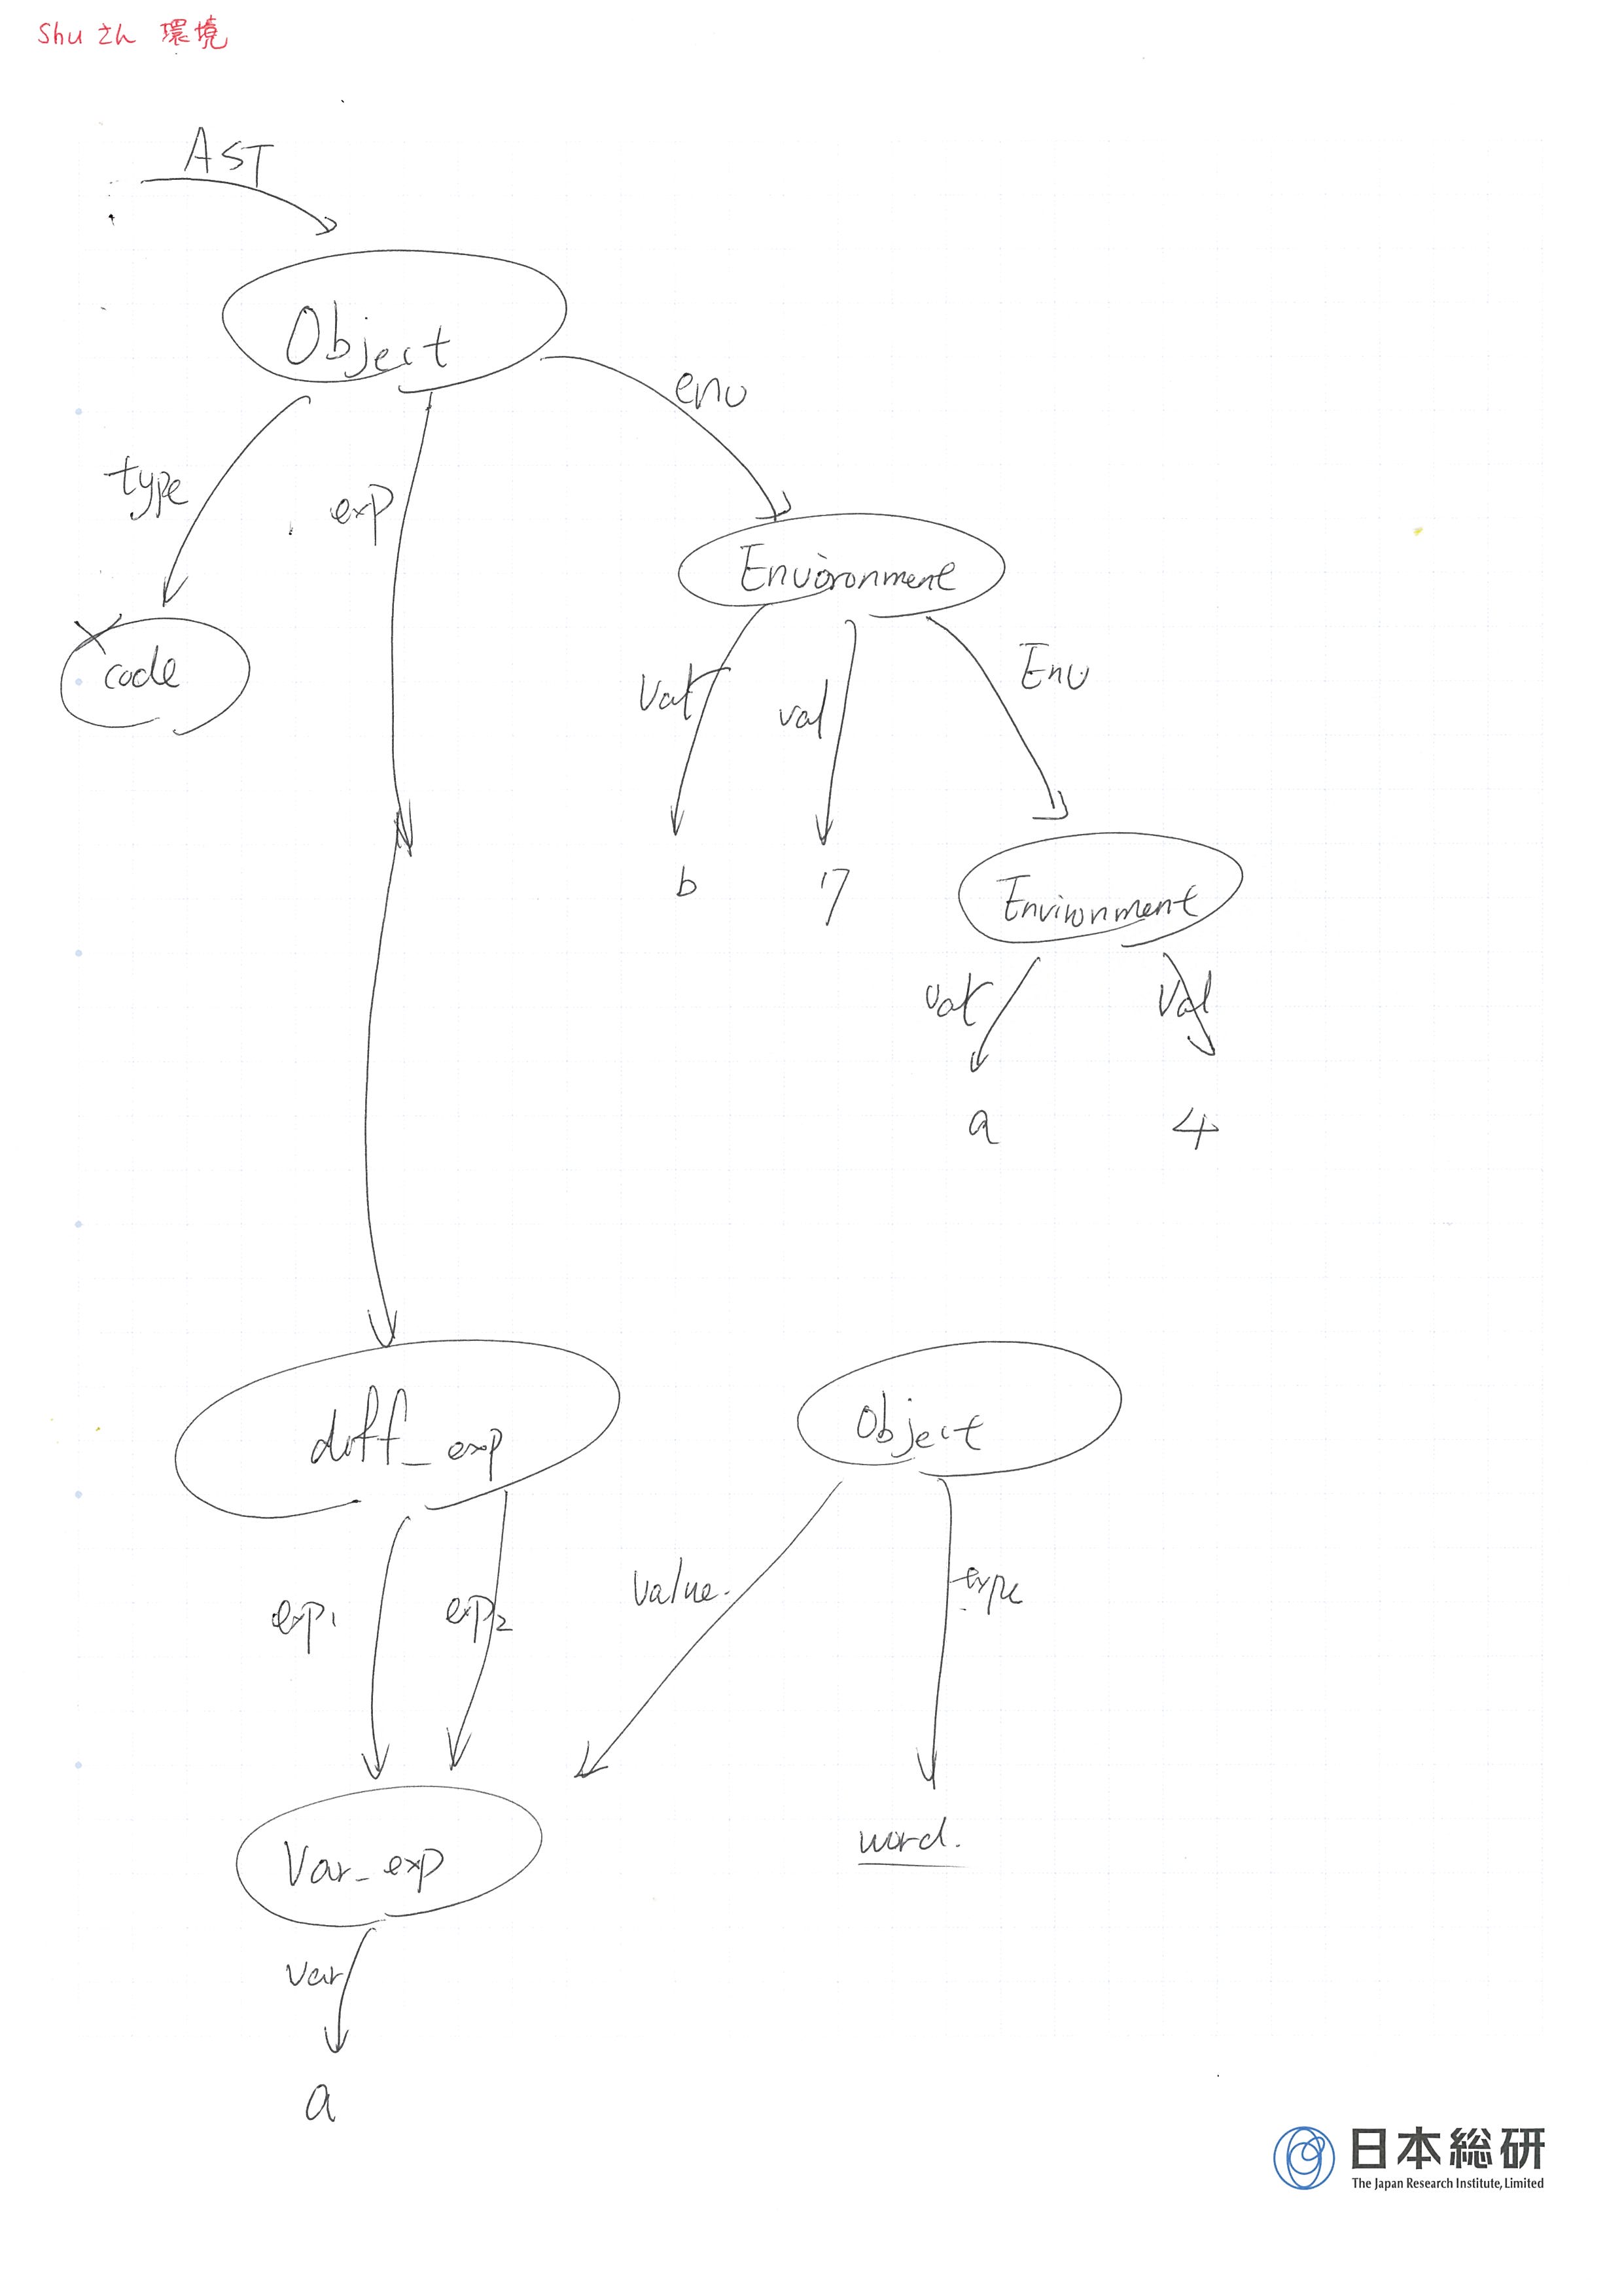 Shuさん 環境
AST
Object
env
type
exp
Environment
code
Var
val
Env
b
7
Environment
var
Val
a
4
diff_exp
Object
exp1
exp2
value.
type
word.
Var_exp
var
a
日本総研
The Japan Research Institute, Limited